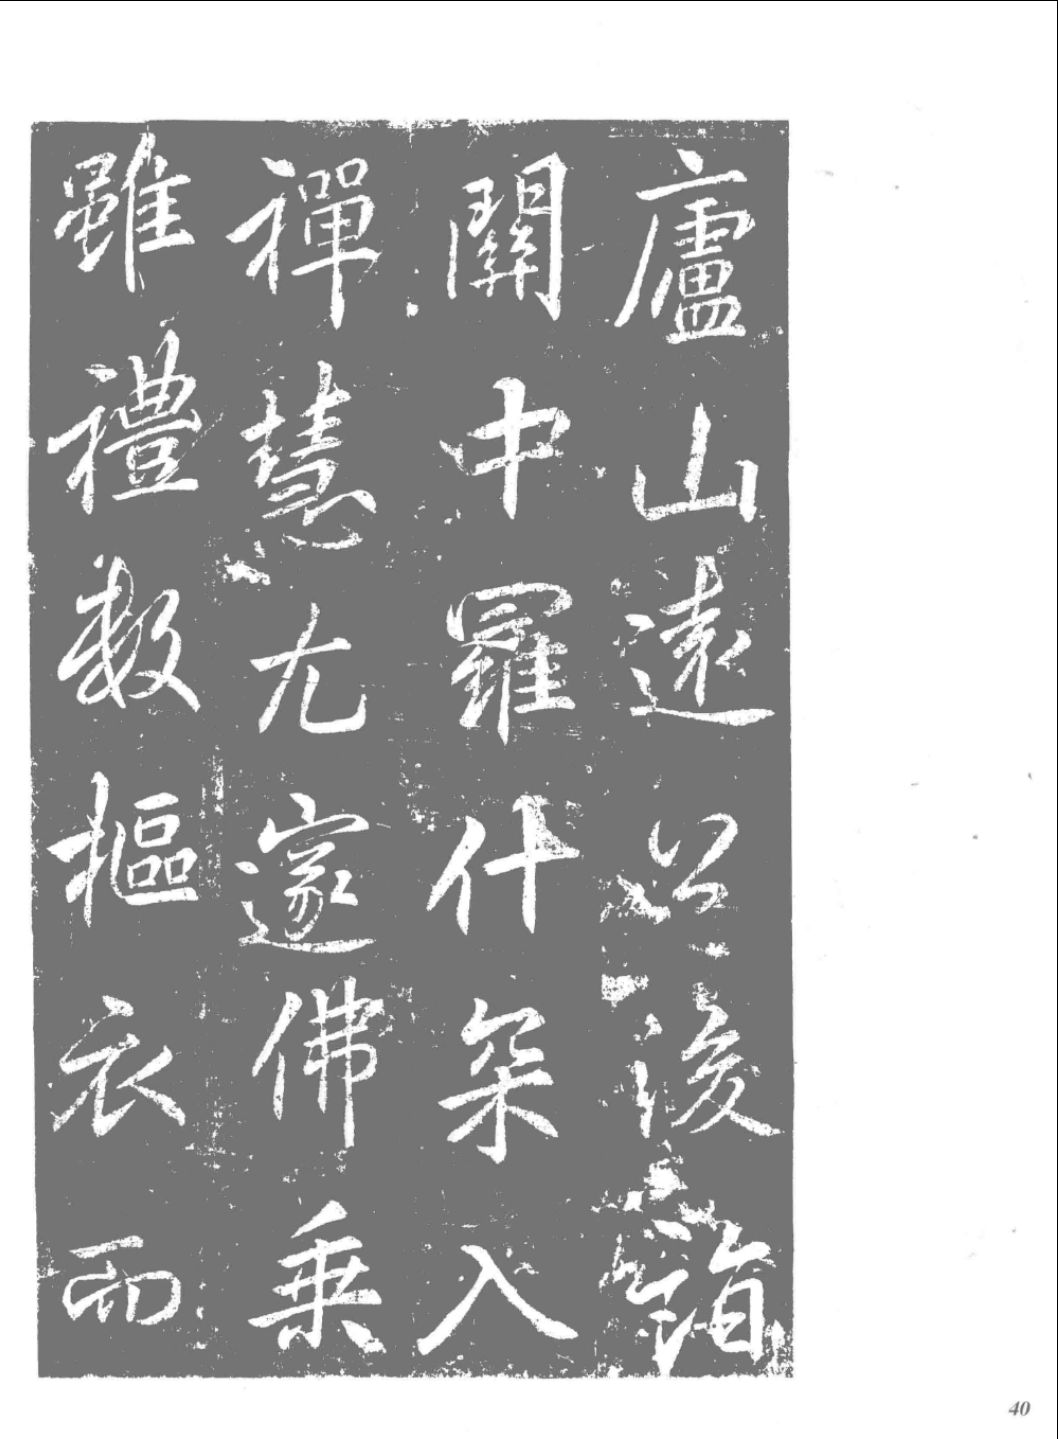 廬山遠公後詣
關中羅什罙入
禪慧尤邃佛乘
雖禮數摳衣而
40